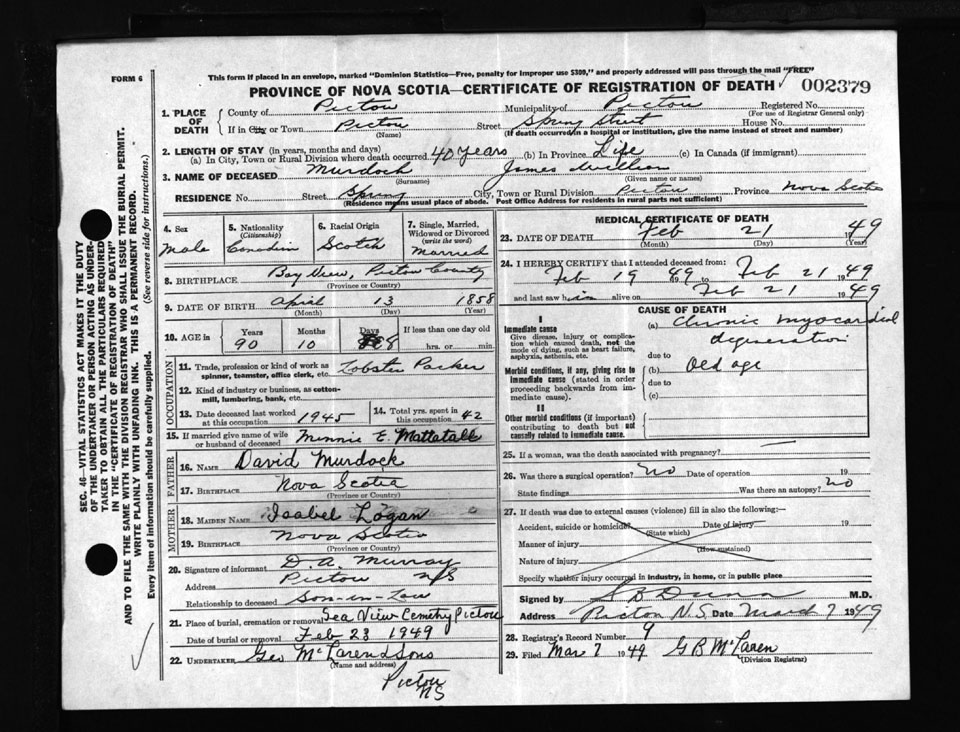 FORM 6
This form if placed in an envelope, marked "Dominion Statistics—Free, penalty for improper use $300," and properly addressed will pass through the mail "FREE"
PROVINCE OF NOVA SCOTIA—CERTIFICATE OF REGISTRATION OF DEATH 002379
1. PLACE OF DEATH
County of Pictou Municipality of Pictou Registered No.
(For use of Registrar General only)
If in City or Town Pictou Street Spring Street House No.
(Name) (If death occurred in a hospital or institution, give the name instead of street and number)
2. LENGTH OF STAY (in years, months and days)
(a) In City, Town or Rural Division where death occurred 40 years (b) In Province Life (c) In Canada (if immigrant)
3. NAME OF DECEASED Murdoch James William
(Surname) (Given name or names)
RESIDENCE No. Street Spring City, Town or Rural Division Pictou Province Nova Scotia
(Residence means usual place of abode. Post Office Address for residents in rural parts not sufficient)
4. Sex Male
5. Nationality (Citizenship) Canadian
6. Racial Origin Scotch
7. Single, Married, Widowed or Divorced (write the word) Married
8. BIRTHPLACE Bay View, Pictou County
(Province or Country)
9. DATE OF BIRTH April 13 1858
(Month) (Day) (Year)
10. AGE in Years Months Days If less than one day old
90 10 8 hrs. or min.
OCCUPATION
11. Trade, profession or kind of work as spinner, teamster, office clerk, etc. Lobster Packer
12. Kind of industry or business, as cotton-mill, lumbering, bank, etc.
13. Date deceased last worked at this occupation 1945
14. Total yrs. spent in this occupation 42
15. If married give name of wife or husband of deceased Minnie E. Mattatall
FATHER
16. NAME David Murdock
17. BIRTHPLACE Nova Scotia
(Province or Country)
MOTHER
18. MAIDEN NAME Isabel Logan
19. BIRTHPLACE Nova Scotia
(Province or Country)
20. Signature of informant D. A. Murray
Address Pictou N/S
Relationship to deceased Son-in-Law
21. Place of burial, cremation or removal Sea View Cemetry Pictou
Date of burial or removal Feb 23 1949
22. UNDERTAKER Geo McLaren & Sons
(Name and address)
Pictou
NS
MEDICAL CERTIFICATE OF DEATH
23. DATE OF DEATH Feb 21 1949
(Month) (Day) (Year)
24. I HEREBY CERTIFY that I attended deceased from:
Feb 19 1949 to Feb 21 1949
and last saw him alive on Feb 21 1949
CAUSE OF DEATH
I
Immediate cause
Give disease, injury or complication which caused death, not the mode of dying, such as heart failure, asphyxia, asthenia, etc.
(a) Chronic myocardical
degeneration
due to
Morbid conditions, if any, giving rise to immediate cause (stated in order proceeding backwards from immediate cause).
(b) Old age
due to
(c)
II
Other morbid conditions (if important) contributing to death but not causally related to immediate cause.
25. If a woman, was the death associated with pregnancy?
26. Was there a surgical operation? no Date of operation 19
State findings Was there an autopsy? no
27. If death was due to external causes (violence) fill in also the following:—
Accident, suicide or homicide? Date of injury 19
(State which)
Manner of injury
(How sustained)
Nature of injury
Specify whether injury occurred in industry, in home, or in public place
Signed by S B Dunn M.D.
Address Pictou N.S. Date March 7 1949
28. Registrar's Record Number 9
29. Filed Mar 7 1949 G B McLaren
(Division Registrar)
SEC. 46—VITAL STATISTICS ACT MAKES IT THE DUTY
OF THE UNDERTAKER OR PERSON ACTING AS UNDER-
TAKER TO OBTAIN ALL THE PARTICULARS REQUIRED
IN THE "CERTIFICATE OF REGISTRATION OF DEATH"
AND TO FILE THE SAME WITH THE DIVISION REGISTRAR WHO SHALL ISSUE THE BURIAL PERMIT.
WRITE PLAINLY WITH UNFADING INK. THIS IS A PERMANENT RECORD.
Every item of information should be carefully supplied. (See reverse side for instructions.)